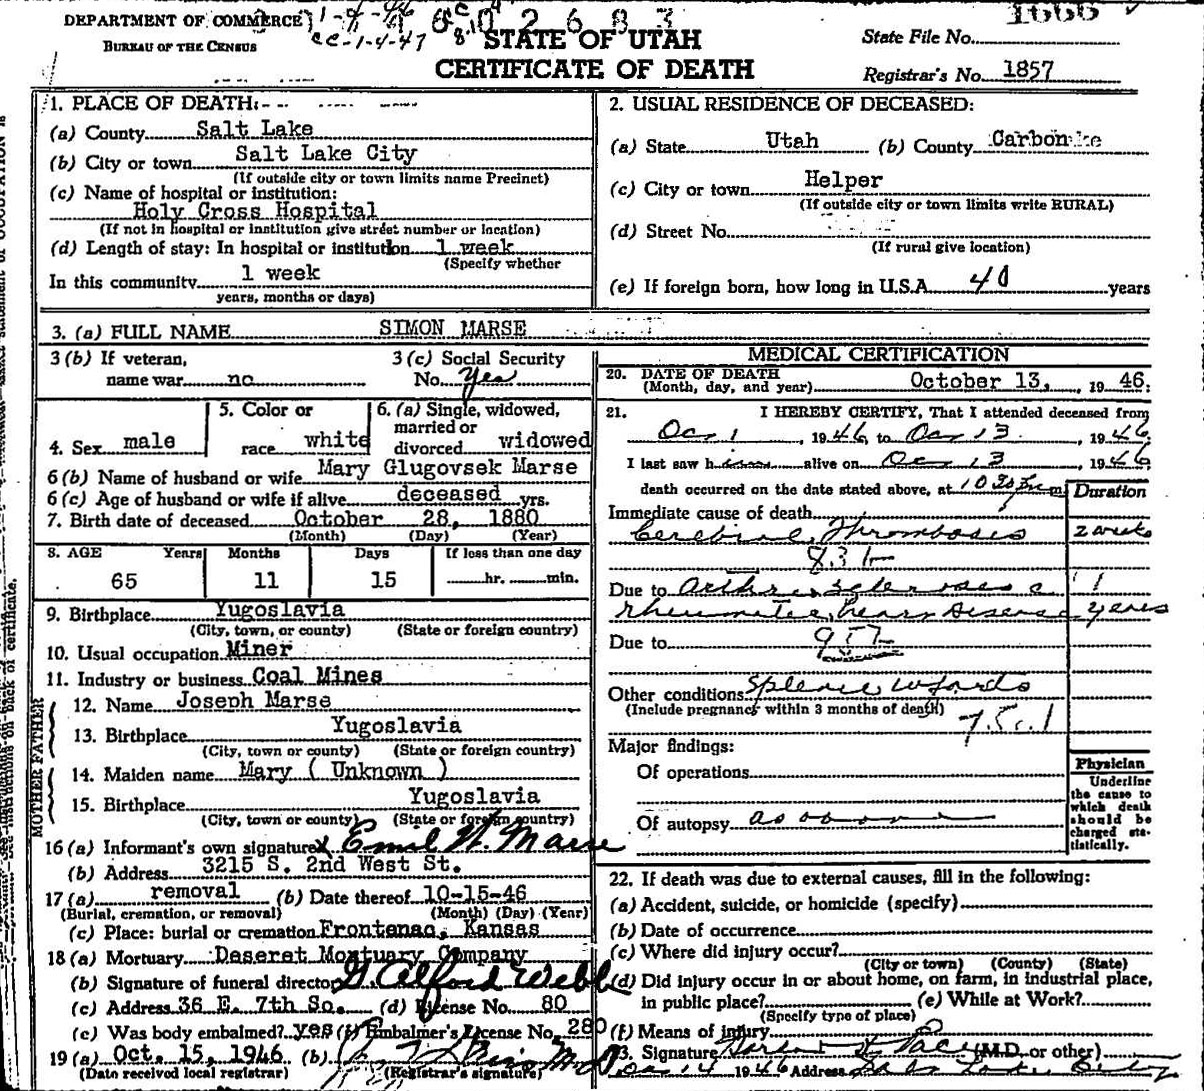 DEPARTMENT OF COMMERCE
BUREAU OF THE CENSUS
1-4-47
2 6 8 3
STATE OF UTAH
CERTIFICATE OF DEATH
1666
State File No.
Registrar's No. 1857
1. PLACE OF DEATH:
(a) County Salt Lake
(b) City or town Salt Lake City
(If outside city or town limits name Precinct)
(c) Name of hospital or institution:
Holy Cross Hospital
(If not in hospital or institution give street number or location)
(d) Length of stay: In hospital or institution 1 week
(Specify whether
In this community 1 week
years, months or days)
2. USUAL RESIDENCE OF DECEASED:
(a) State Utah (b) County Carbon
(c) City or town Helper
(If outside city or town limits write RURAL)
(d) Street No.
(If rural give location)
(e) If foreign born, how long in U.S.A. 40 years
3. (a) FULL NAME SIMON MARSE
3 (b) If veteran,
name war no
3 (c) Social Security
No. Yes
4. Sex male
5. Color or
race white
6. (a) Single, widowed,
married or
divorced widowed
6 (b) Name of husband or wife Mary Glugovsek Marse
6 (c) Age of husband or wife if alive deceased yrs.
7. Birth date of deceased October 28, 1880
(Month) (Day) (Year)
8. AGE Years Months Days If less than one day
65 11 15 hr. min.
9. Birthplace Yugoslavia
(City, town, or county) (State or foreign country)
10. Usual occupation Miner
11. Industry or business Coal Mines
FATHER
12. Name Joseph Marse
13. Birthplace Yugoslavia
(City, town or county) (State or foreign country)
MOTHER
14. Maiden name Mary ( Unknown )
15. Birthplace Yugoslavia
(City, town or county) (State or foreign country)
16 (a) Informant's own signature x Emil W. Marse
(b) Address 3215 S. 2nd West St.
17 (a) removal (b) Date thereof 10-15-46
(Burial, cremation, or removal) (Month) (Day) (Year)
(c) Place: burial or cremation Frontenac, Kansas
18 (a) Mortuary Deseret Mortuary Company
(b) Signature of funeral director G. Alford Webb
(c) Address 36 E. 7th So. (d) License No. 80
(e) Was body embalmed? yes (f) Embalmer's License No. 280
19 (a) Oct. 15, 1946 (b)
(Date received local registrar) (Registrar's signature)
MEDICAL CERTIFICATION
20. DATE OF DEATH
(Month, day, and year) October 13, 1946.
21. I HEREBY CERTIFY, That I attended deceased from
Oct 1, 1946, to Oct 13, 1946.
I last saw him alive on Oct 13, 1946
death occurred on the date stated above, at 10 30 P m.
Duration
Immediate cause of death
Cerebral Thrombosis 2 weeks
83b
Due to Arterio sclerosis c
rheumatic heart disease years
Due to
95b
Other conditions Splenic infarcts
(Include pregnancy within 3 months of death)
Major findings:
Of operations
Of autopsy as above
Physician
Underline
the cause to
which death
should be
charged sta-
tistically.
22. If death was due to external causes, fill in the following:
(a) Accident, suicide, or homicide (specify)
(b) Date of occurrence
(c) Where did injury occur?
(City or town) (County) (State)
(d) Did injury occur in or about home, on farm, in industrial place,
in public place? (e) While at Work?
(Specify type of place)
(f) Means of injury
23. Signature (M.D. or other)
Oct 14 1946 Address Salt Lake City